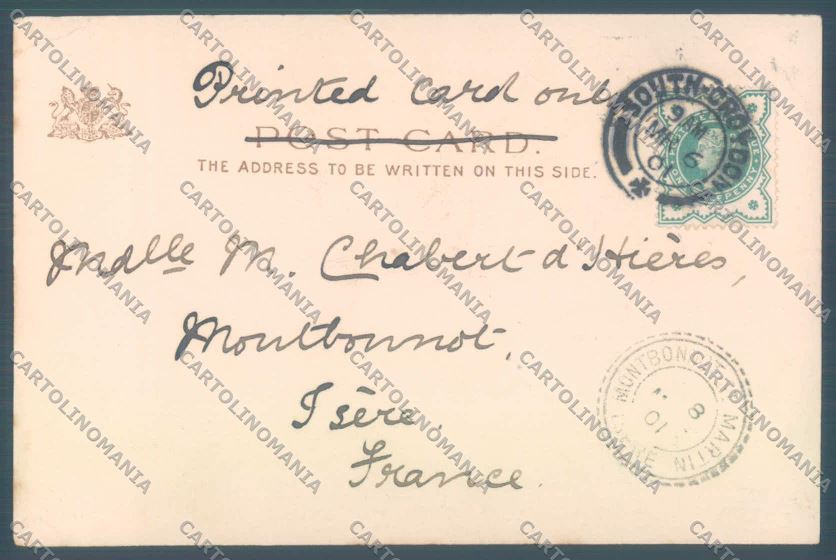 Printed card only
POST CARD.
THE ADDRESS TO BE WRITTEN ON THIS SIDE.
SOUTH-CROYDON
9 PM
MR 6
01
Mdlle M. Chabert d'Hières,
Montbonnot.
Isère.
France.
MONTBONNOT ST MARTIN
8
01
ISERE
CARTOLINOMANIA